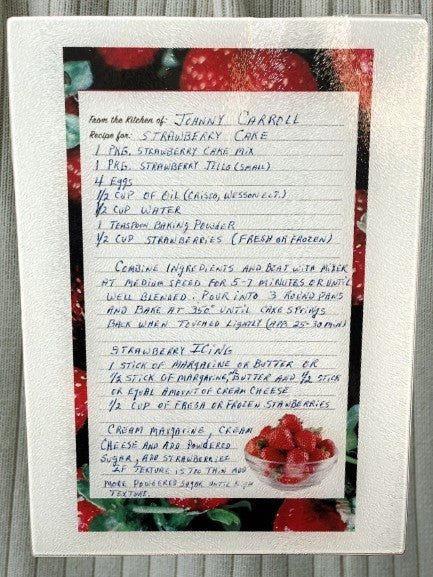 From the Kitchen of: Johnny Carroll
Recipe for: Strawberry Cake
1 Pkg. Strawberry Cake Mix
1 Pkg. Strawberry Jello (small)
4 Eggs
1/2 Cup of Oil (Crisco, Wesson Et.)
1/2 Cup Water
1 Teaspoon Baking Powder
1/2 Cup Strawberries (Fresh or Frozen)
Combine Ingredients and Beat with Mixer
at Medium Speed for 5-7 minutes or until
well blended. Pour into 3 round pans
and bake at 350° until cake springs
back when touched lightly (app. 25-30 min)
Strawberry Icing
1 stick of margarine or butter or
1/2 stick of margarine, or butter and 1/2 stick
or equal amount of cream cheese
1/2 cup of fresh or frozen stawberries
Cream margarine, cream
cheese and add powdered
sugar, add strawberries
If texture is too thin add
more powdered sugar until
texture.